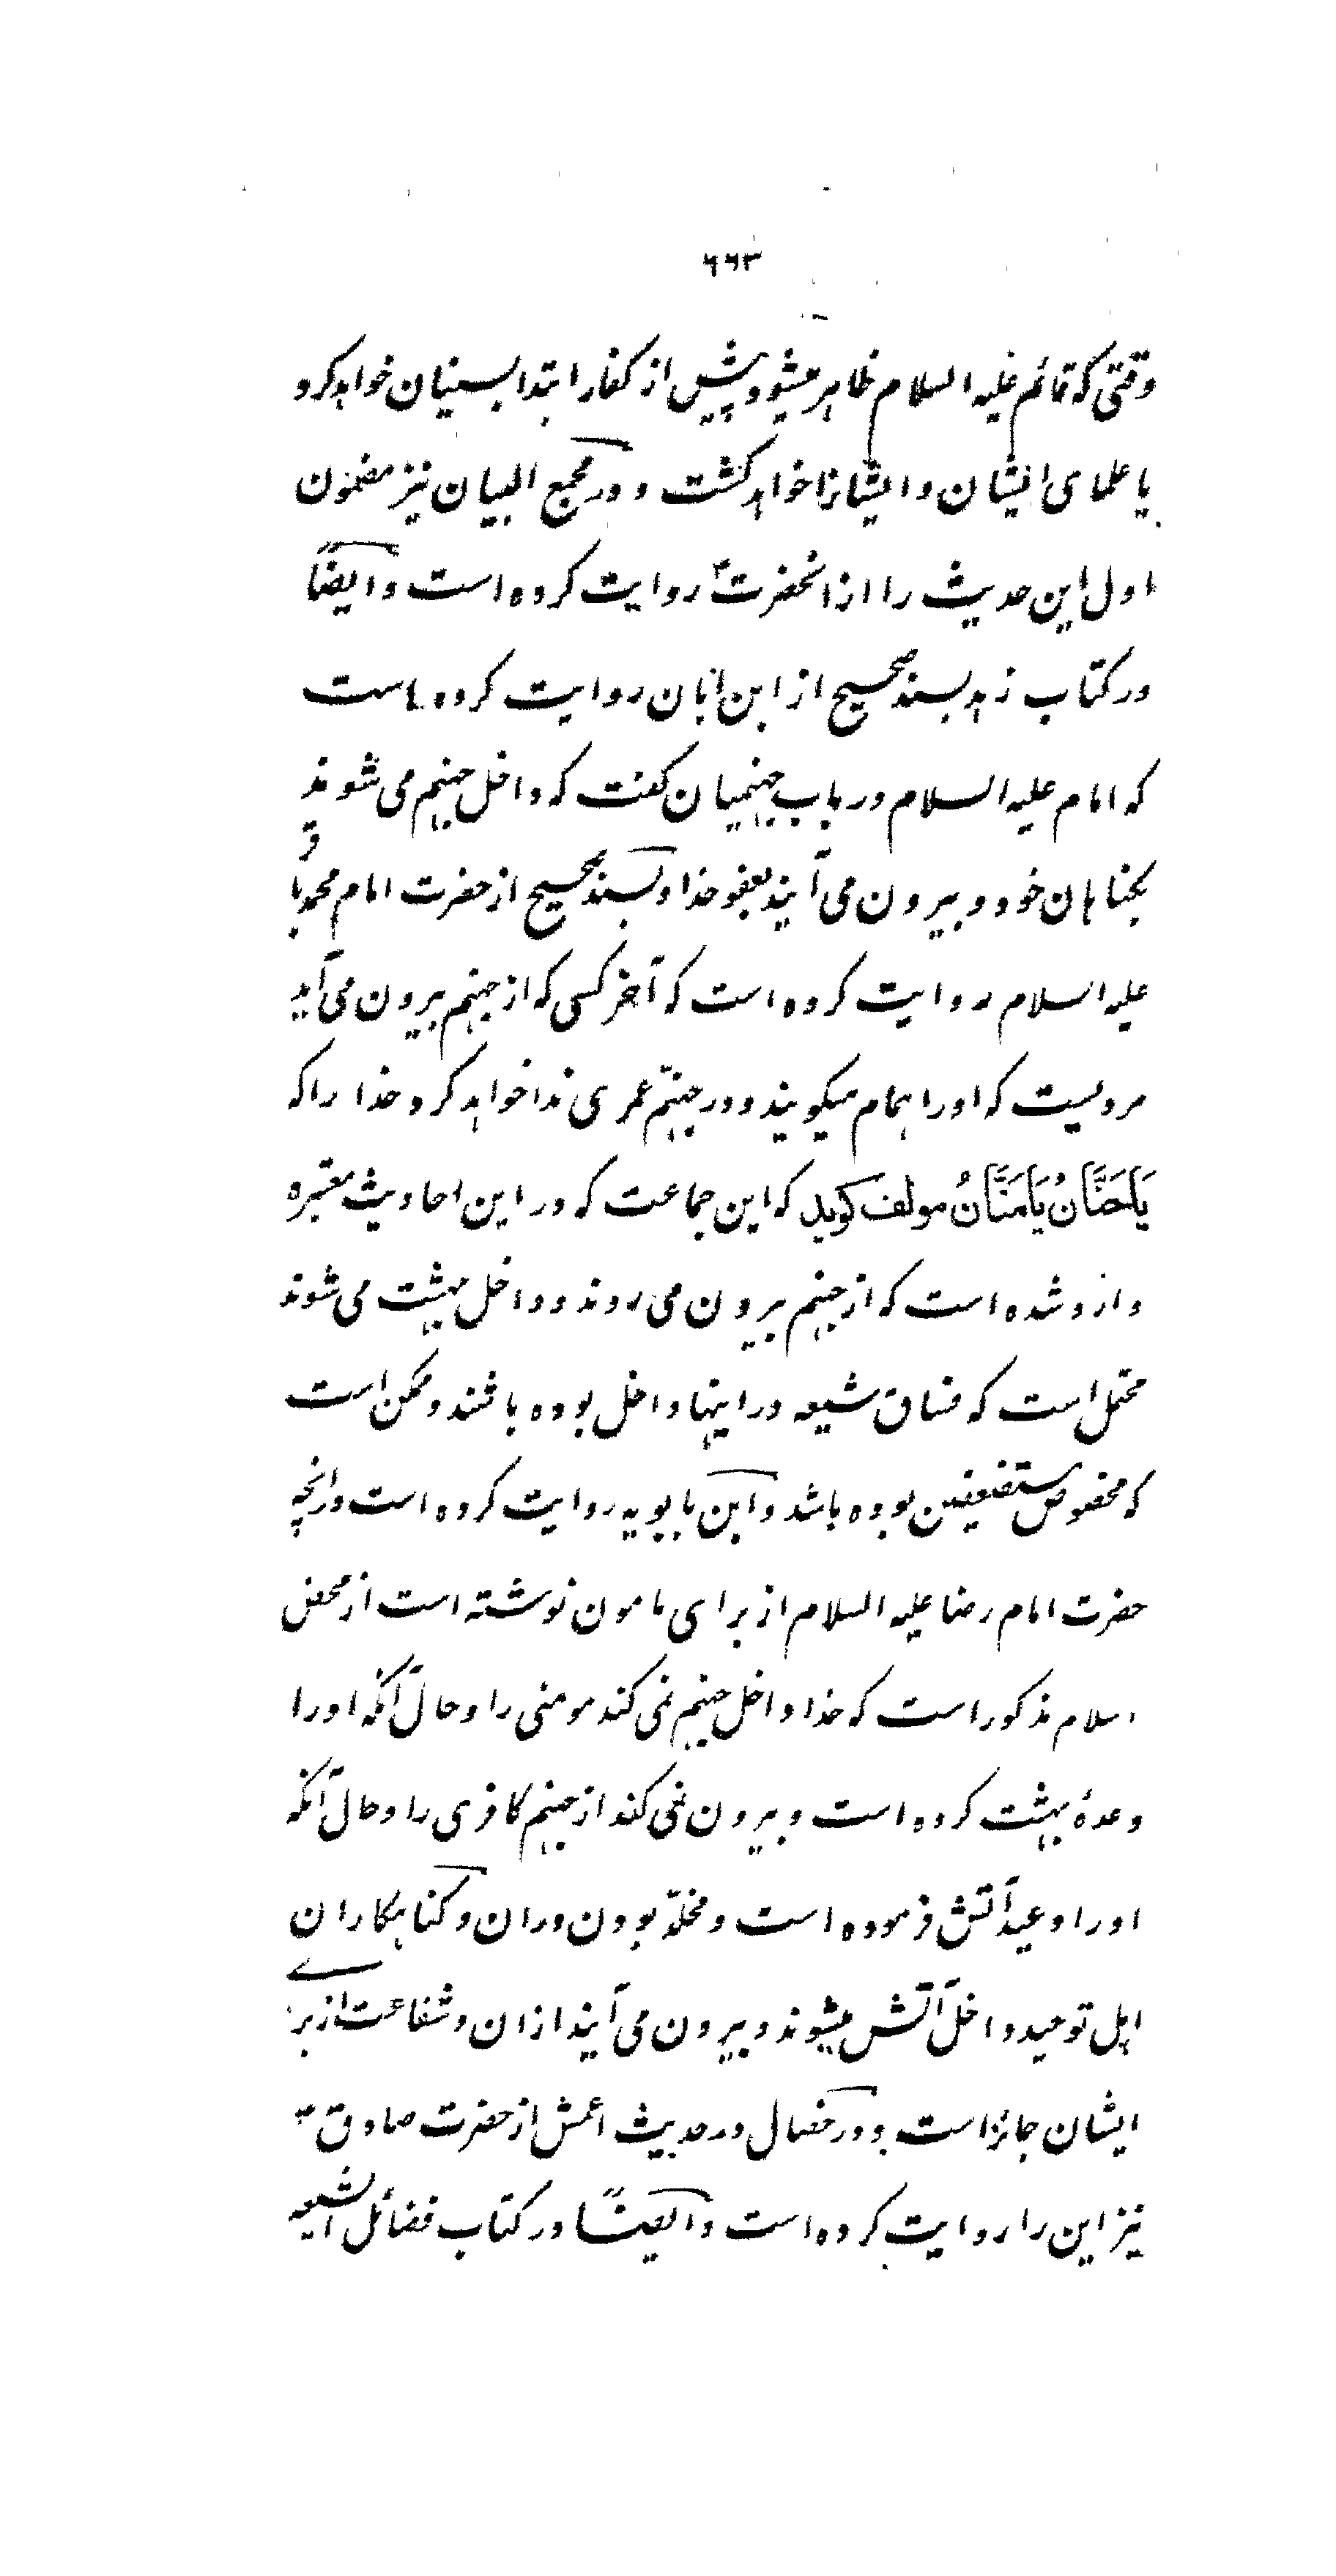 ٦٦٣
وقتی که قائم علیه السلام ظاهر میشود پیش از کفار ابتدا بسنیان خواهد کرد
با علمای ایشان و ایشانرا خواهد کشت و در مجمع البیان نیز مضمون
اول این حدیث را از انحضرت ؑ روایت کرده است و ایضًا
در کتاب زهد بسند صحیح از ابن ابان روایت کرده است
که امام علیه السلام در باب جهنمیان گفت که داخل جهنم می شوند
بگناهان خود و بیرون می آیند بعفو خدا و بسند صحیح از حضرت امام محمد باقر
علیه السلام روایت کرده است که آخر کسی که از جهنم بیرون می آید
مردیست که او را همام میگویند و در جهنّم عمری ندا خواهد کرد خدا را که
یَا حَنَّانُ یَا مَنَّانُ مولف گوید که این جماعت که در این احادیث معتبره
وارد شده است که از جهنم بیرون می روند و داخل بهشت می شوند
محتمل است که فساق شیعه در اینها داخل بوده باشند و ممکن است
که مخصوص مستضعفین بوده باشد و ابن بابویه روایت کرده است در انچه
حضرت امام رضا علیه السلام از برای مامون نوشته است از محض
اسلام مذکور است که خدا داخل جهنم نمی کند مومنی را و حال آنکه او را
وعدۀ بهشت کرده است و بیرون نمی کند از جهنم کافری را و حال آنکه
او را وعید آتش فرموده است و مخلّد بودن دران و گناهکاران
اهل توحید داخل آتش میشوند و بیرون می آیند ازان و شفاعت از برای
ایشان جائز است و در خصال در حدیث اعمش از حضرت صادق ؑ
نیز این را روایت کرده است و ایضًا در کتاب فضائل الشیعه